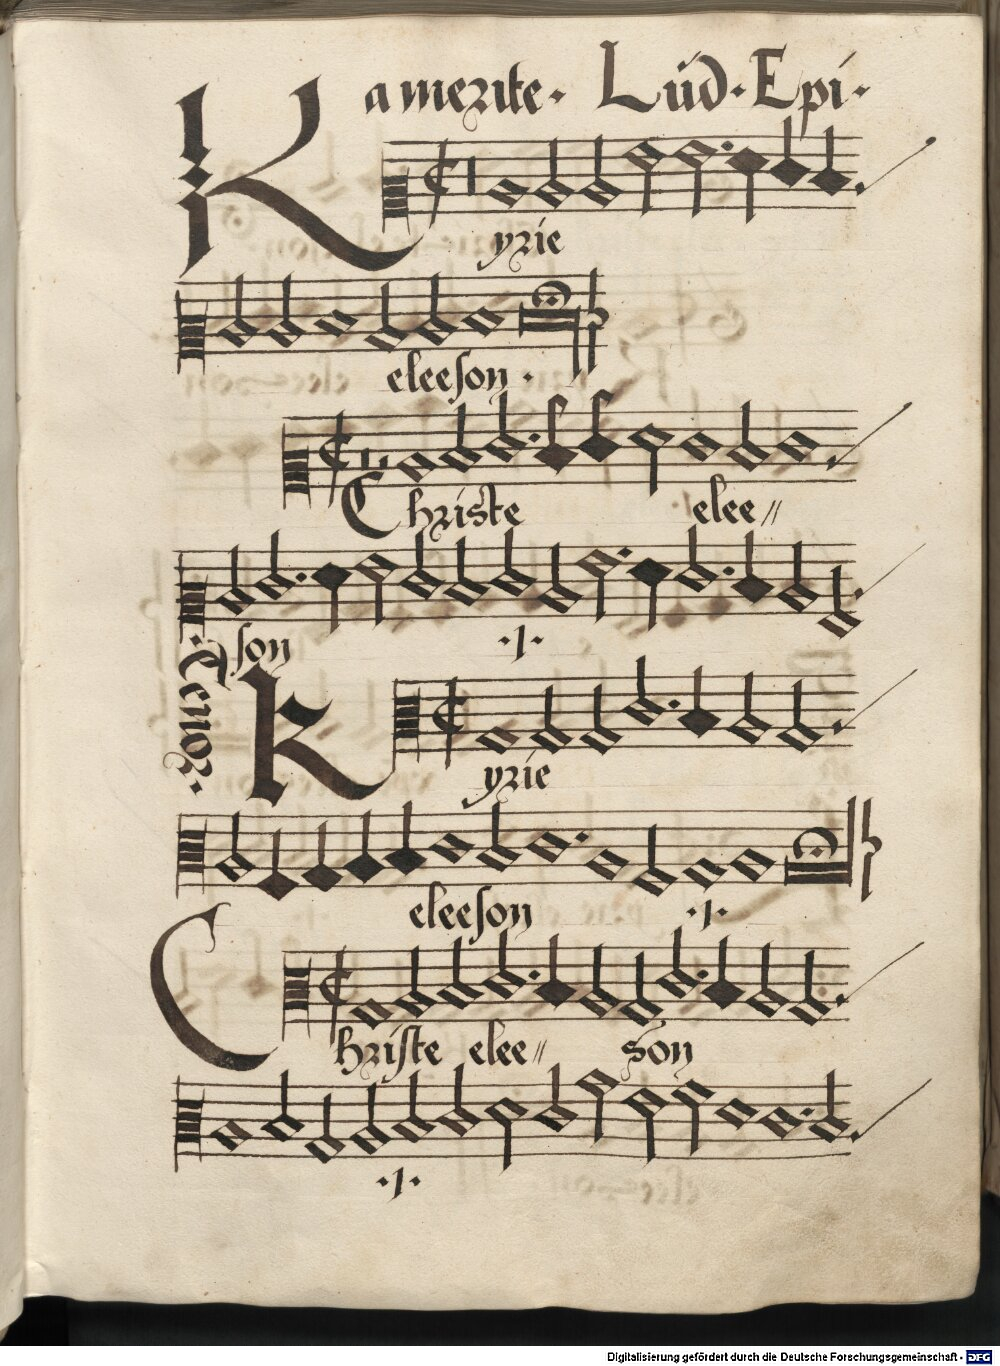 a mezite · Lud · Epi ·
Kyrie
eleeson ·
Christe elee //
son ·I·
Tenor
Kyrie
eleeson ·I·
Christe elee // son
·I·
Digitalisierung gefördert durch die Deutsche Forschungsgemeinschaft - DFG